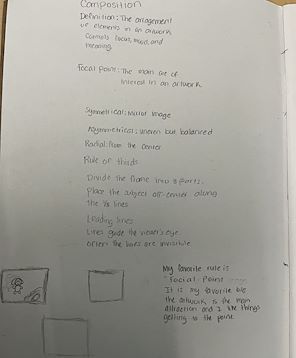 Composition
Definition: The arragement
of elements in an artwork
Controls focus, mood, and
meaning.
Focal point: The main are of
interest in an artwork
Symmetrical: Mirror image
Asymmetrical: uneven but balanced
Radial: from the center
Rule of thirds
Divide the frame into 3 parts.
Place the subject off-center along
the 1/3 lines
Leading lines
Lines guide the viewer's eye
often the lines are invisible
My favorite rule is
"Focal Point
It is my favorite b/c
the artwork is the main
attraction and I like things
getting to the point